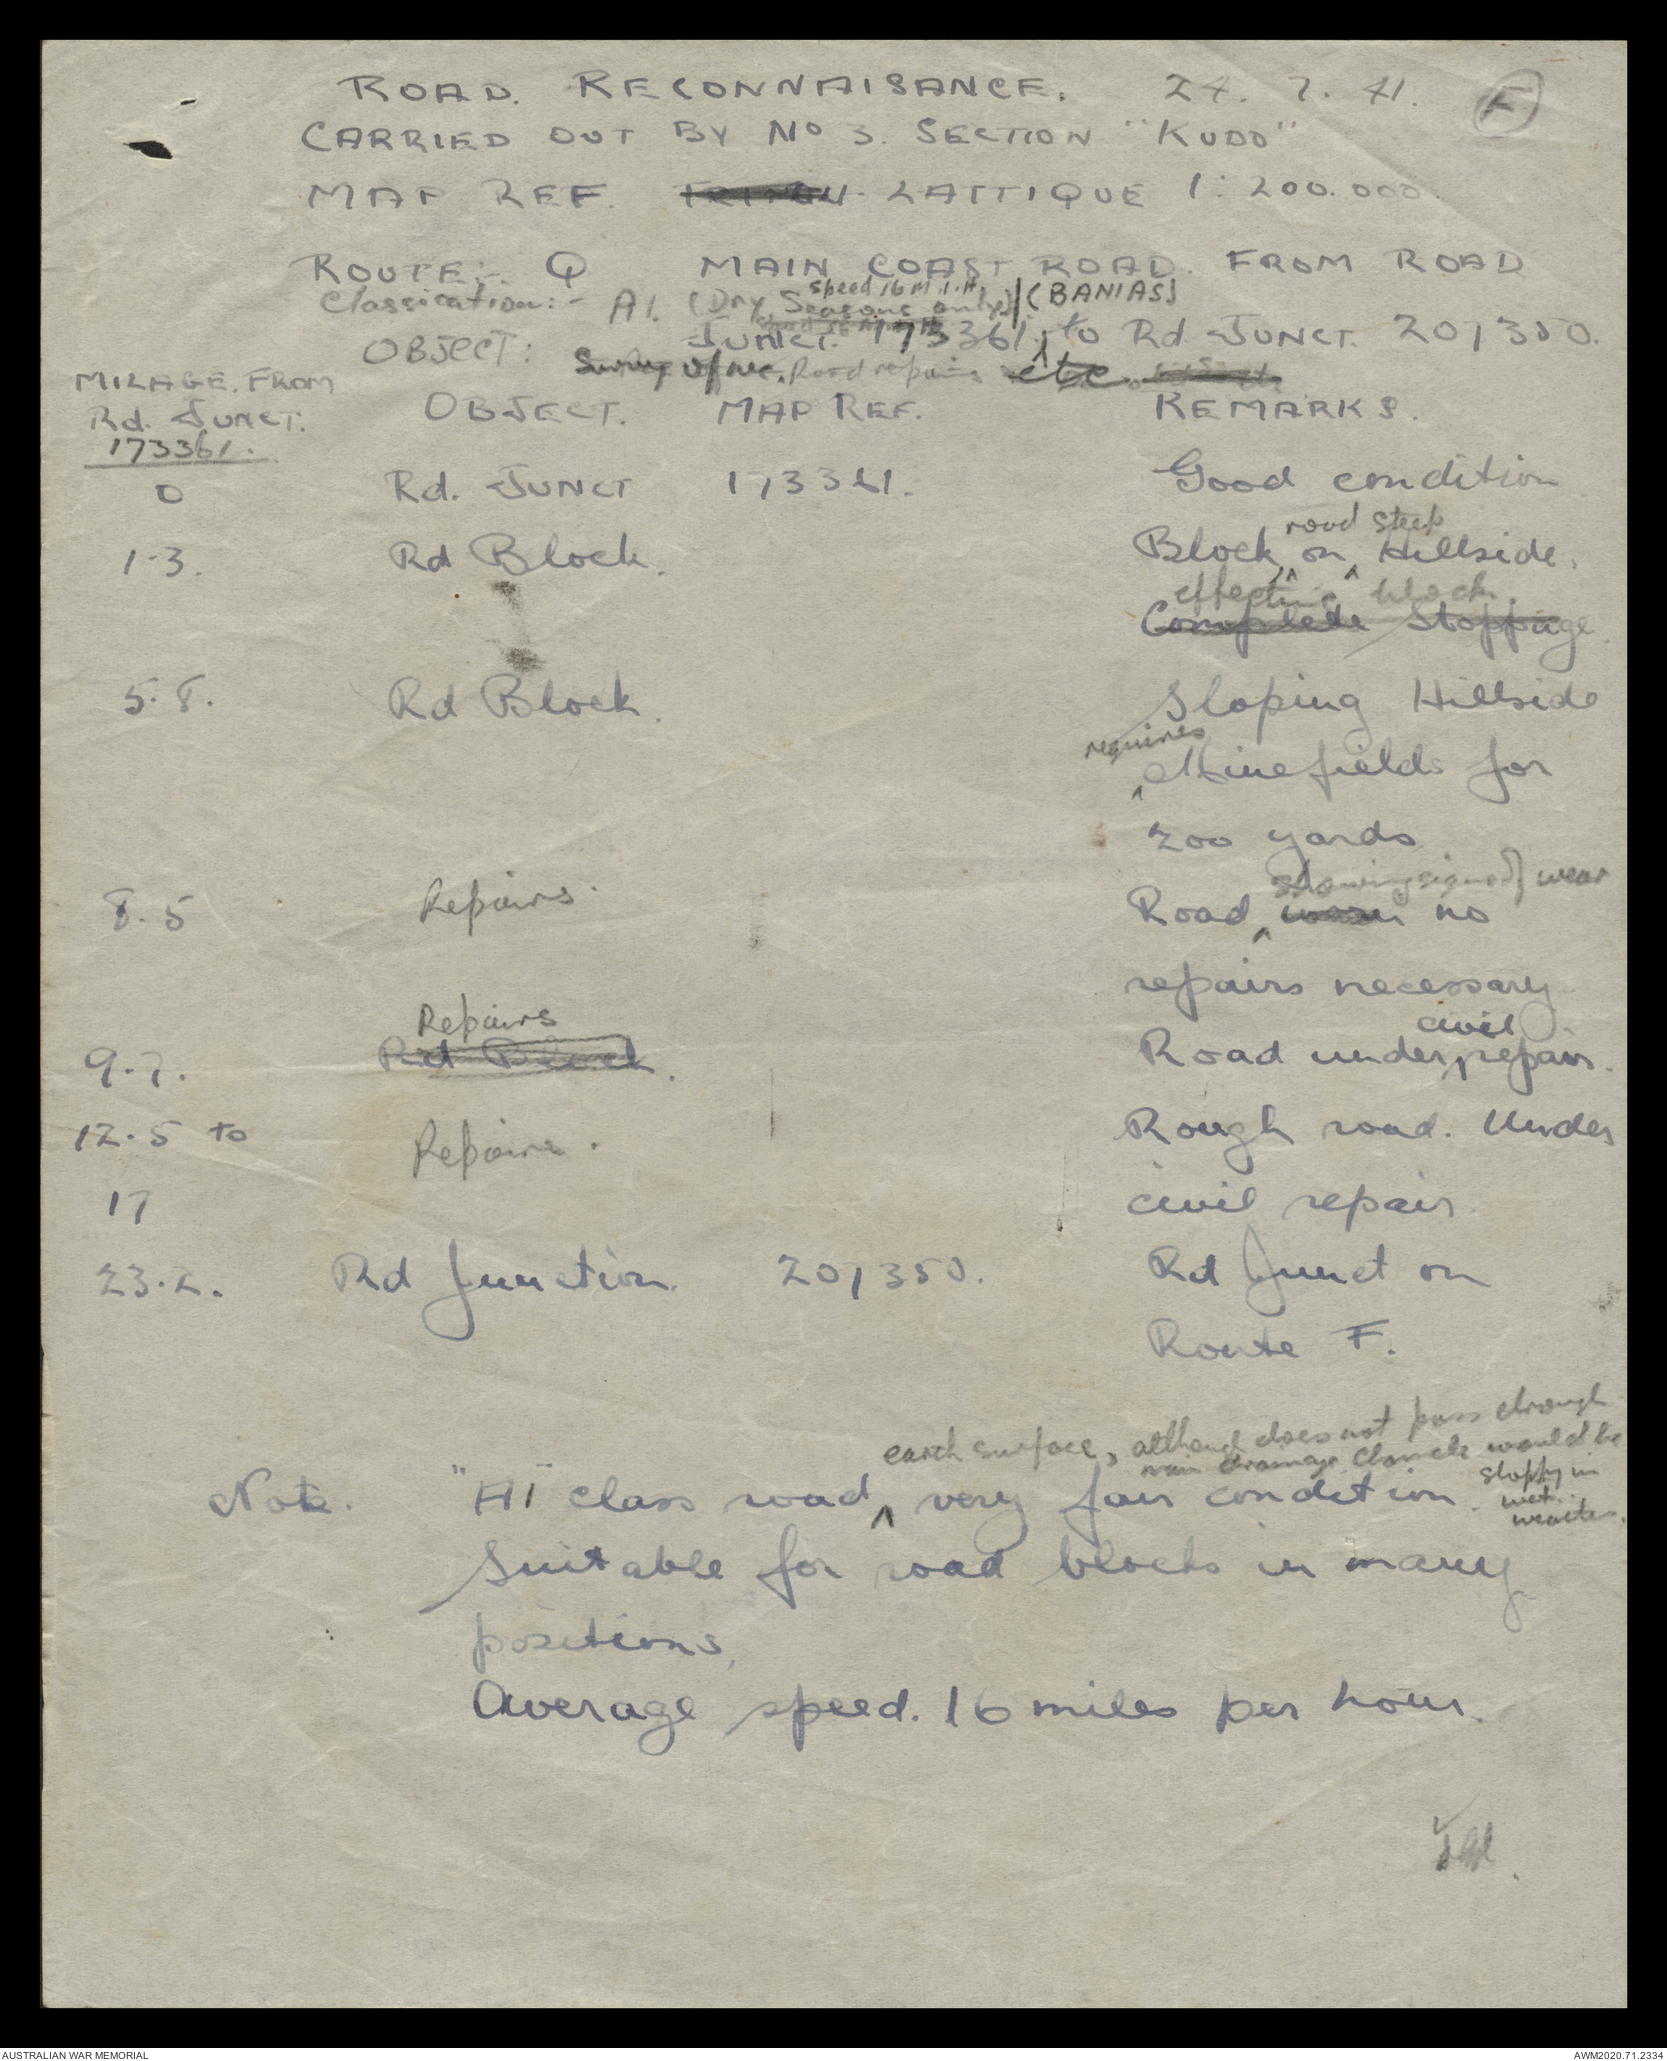 ROAD. RECONNAISANCE. 24. 7. 41. F
CARRIED OUT BY No 3. SECTION "KUDO"
MAP REF. LATTIQUE 1:200.000.
ROUTE:- Q MAIN COAST ROAD. FROM ROAD
speed 16 M.I.H.
Classication:- A1. (Dry Seasons only) (BANIAS)
JUNCT. 173361, to Rd JUNCT. 201350.
OBJECT: Road repairs etc.
MILAGE. FROM
Rd. JUNCT.
173361.
OBJECT. MAP REF. REMARKS.
0 Rd. JUNCT 173361. Good condition
road steep
1.3. Rd Block. Block, on Hillside.
effective block.
Complete Stoppage.
5.8. Rd Block. Sloping Hillside
requires
Minefields for
200 yards
showing signs of wear
8.5 Repairs. Road worn no
repairs necessary
Repairs civil
9.7. Rd Block. Road under repair.
12.5 to Repairs. Rough road. Under
17 civil repair.
23.2. Rd Junction. 201350. Rd Junct on
Route F.
earth surface, although does not pass through
main drainage channels would be
sloppy in
wet
weather.
Note. "A1" class road very fair condition.
Suitable for road blocks in many
positions.
Average speed. 16 miles per hour.
AUSTRALIAN WAR MEMORIAL AWM2020.71.2334